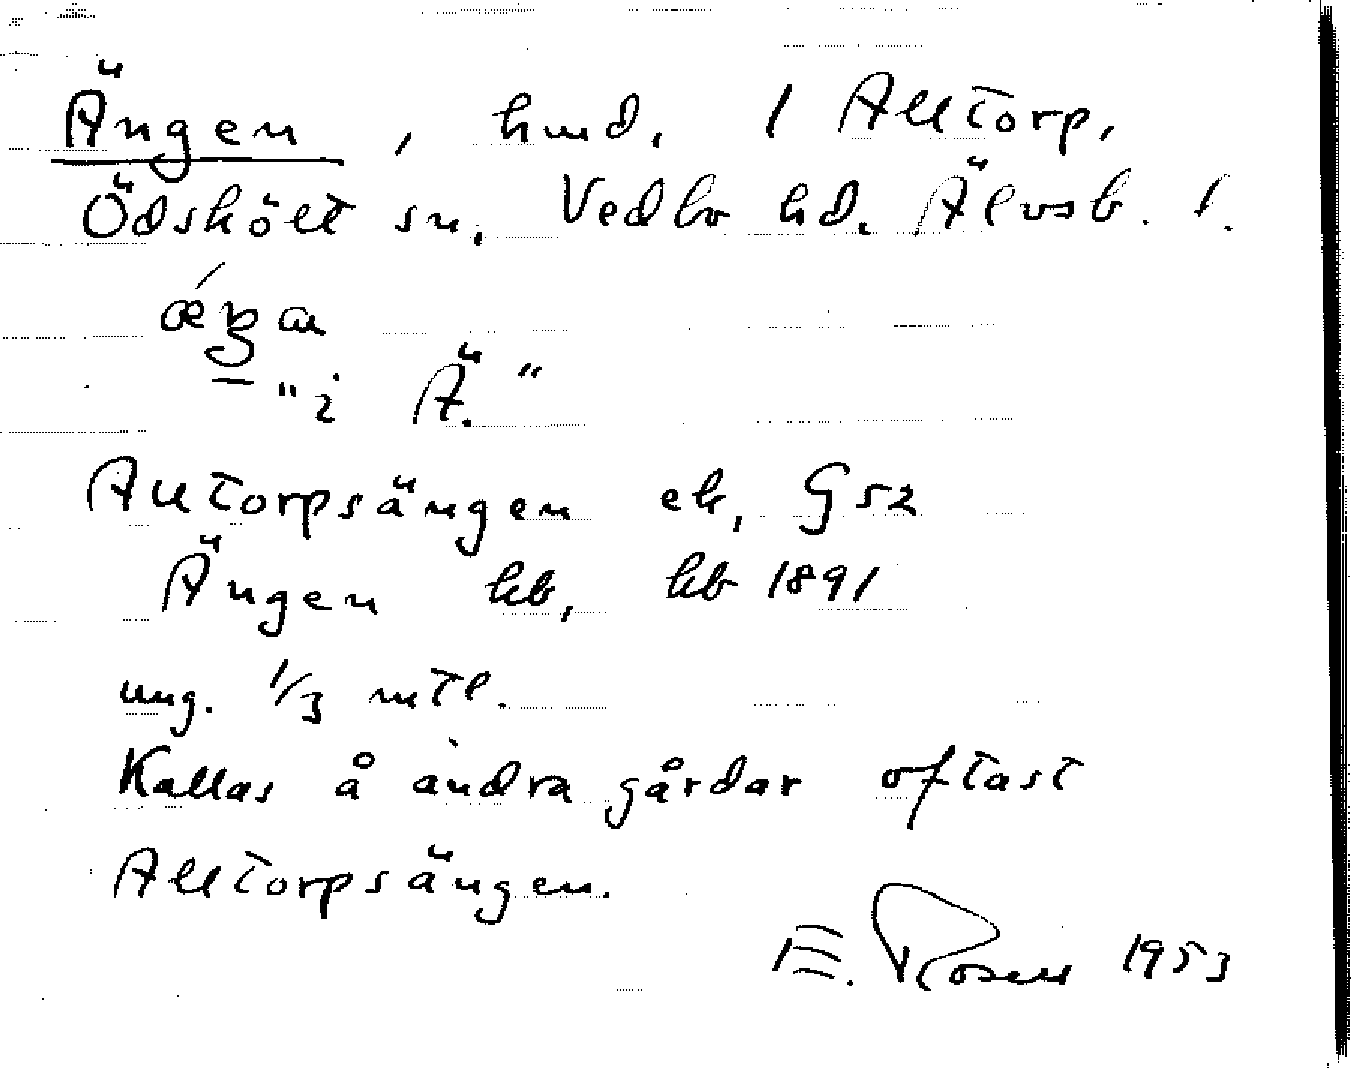 Ängen, hmd. 1 Alltorp,
Ödskölt sn. Vedbo hd. Älvsb. l.
"i Ä."
Alltorpsängen ek, G 52
Ängen kb, kb 1891
ung. 1/3 mtl.
Kallas å andra gårdar oftast
Alltorpsängen.
E. Rosell 1953